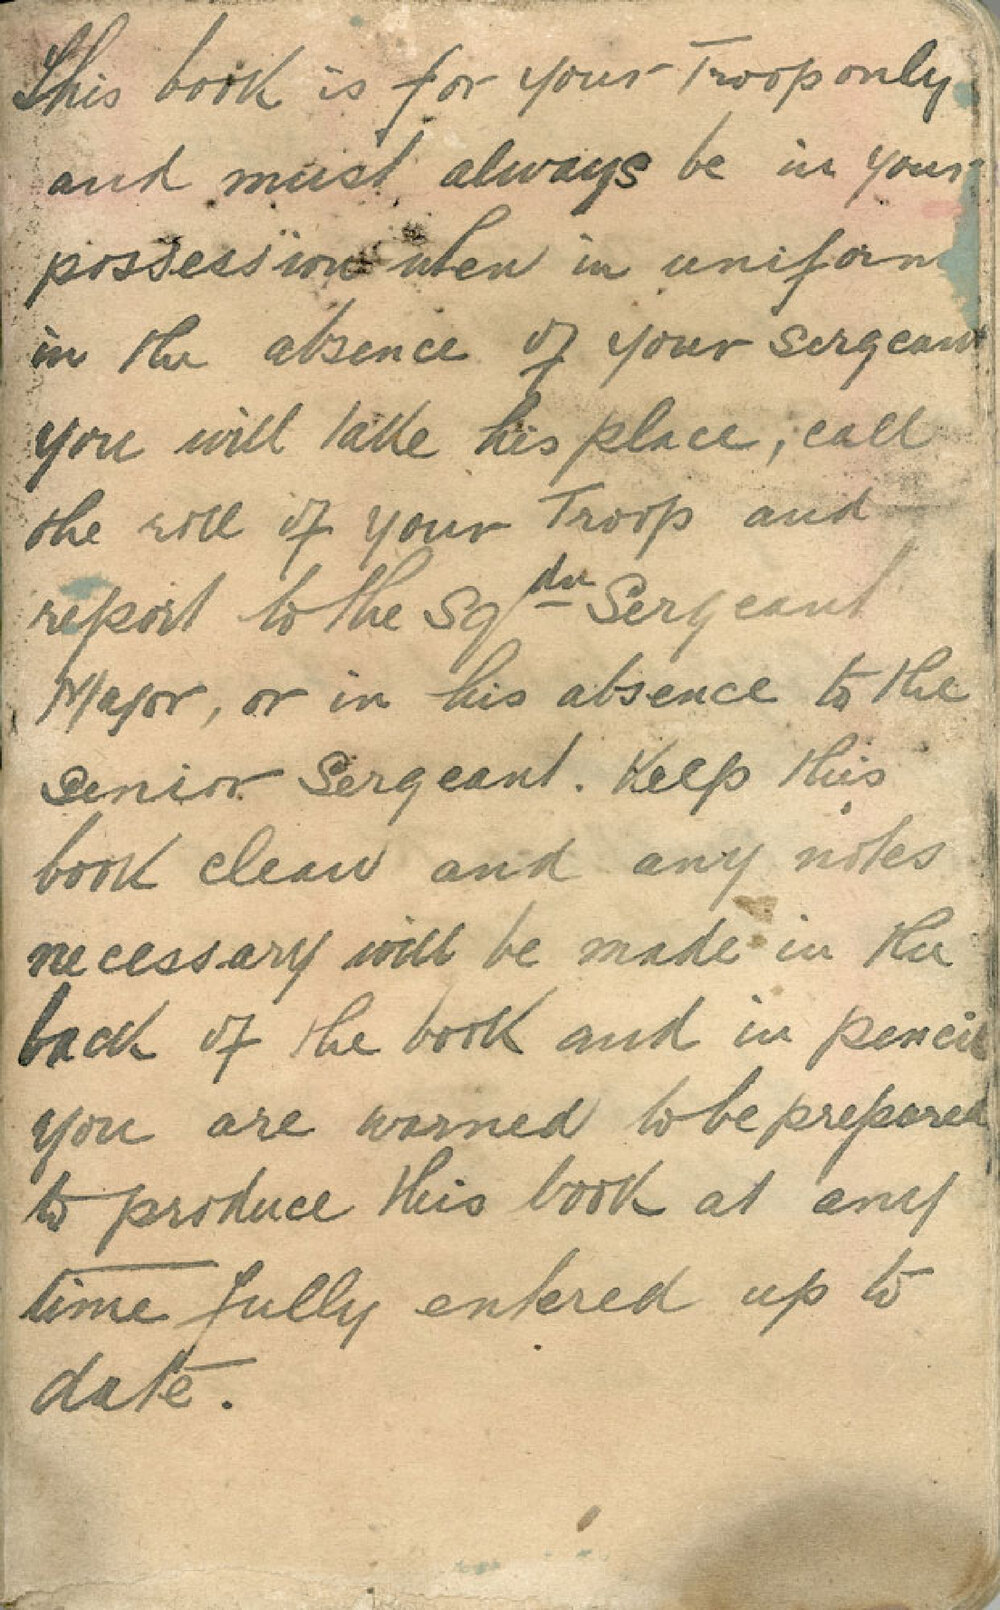 This book is for your Troop only
and must always be in your
possession when in uniform
in the absence of your sergeant
you will take his place, call
the roll of your Troop and
report to the Sqdn Sergeant
Major, or in his absence to the
senior Sergeant. Keep this
book clean and any notes
necessary will be made in the
back of the book and in pencil
you are warned to be prepared
to produce this book at any
time fully entered up to
date.